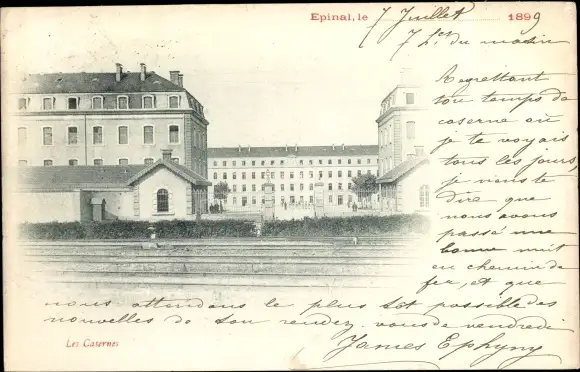 Epinal, le 7 Juillet 1899
7 h. du matin
Regrettant
ton temps de
caserne où
je te voyais
tous les jours,
je viens te
dire que
nous avons
passé une
bonne nuit
en chemin de
fer, et que
nous attendons le plus tôt possible des
nouvelles de ton rendez-vous de vendredi
James
Les Casernes